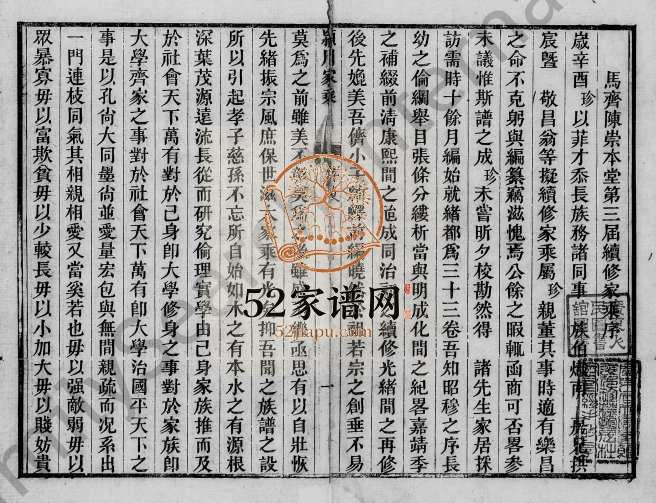 馬齊陳崇本堂第三屆續修家乘序
歲辛酉珍以菲才忝長族務諸同事族伯
宸暨敬昌翁等擬續修家乘屬珍親董其事時適有樂昌
之命不克躬與編纂竊滋愧焉公餘之暇輒函商可否畧參
末議惟斯譜之成珍未嘗昕夕校勘然得諸先生家居採
訪需時十餘月編始就緒都為三十三卷吾知昭穆之序長
幼之倫綱舉目張條分縷析當與明成化間之紀畧嘉靖季
之補綴前清康熙間之 成同治 續修光緒間之再修
後先媲美吾儕小 前編 若宗之創垂不易
潁川家乘
一
莫為之前雖美不彰莫為之 雖盛 亟思有以自壯恢
先緒振宗風庶保世滋大家乘有光 抑吾聞之族譜之設
所以引起孝子慈孫不忘所自始如木之有本水之有源根
深葉茂源遠流長從而研究倫理實學由己身家族推而及
於社會天下萬有對於己身卽大學修身之事對於家族卽
大學齊家之事對於社會天下萬有卽大學治國平天下之
事是以孔尚大同墨尚並愛量宏包與無間親疏而況系出
一門連枝同氣其相親相愛又當奚若也毋以強敵弱毋以
眾暴寡毋以富欺貧毋以少較長毋以小加大毋以賤妨貴
52家谱网
52jiapu.com